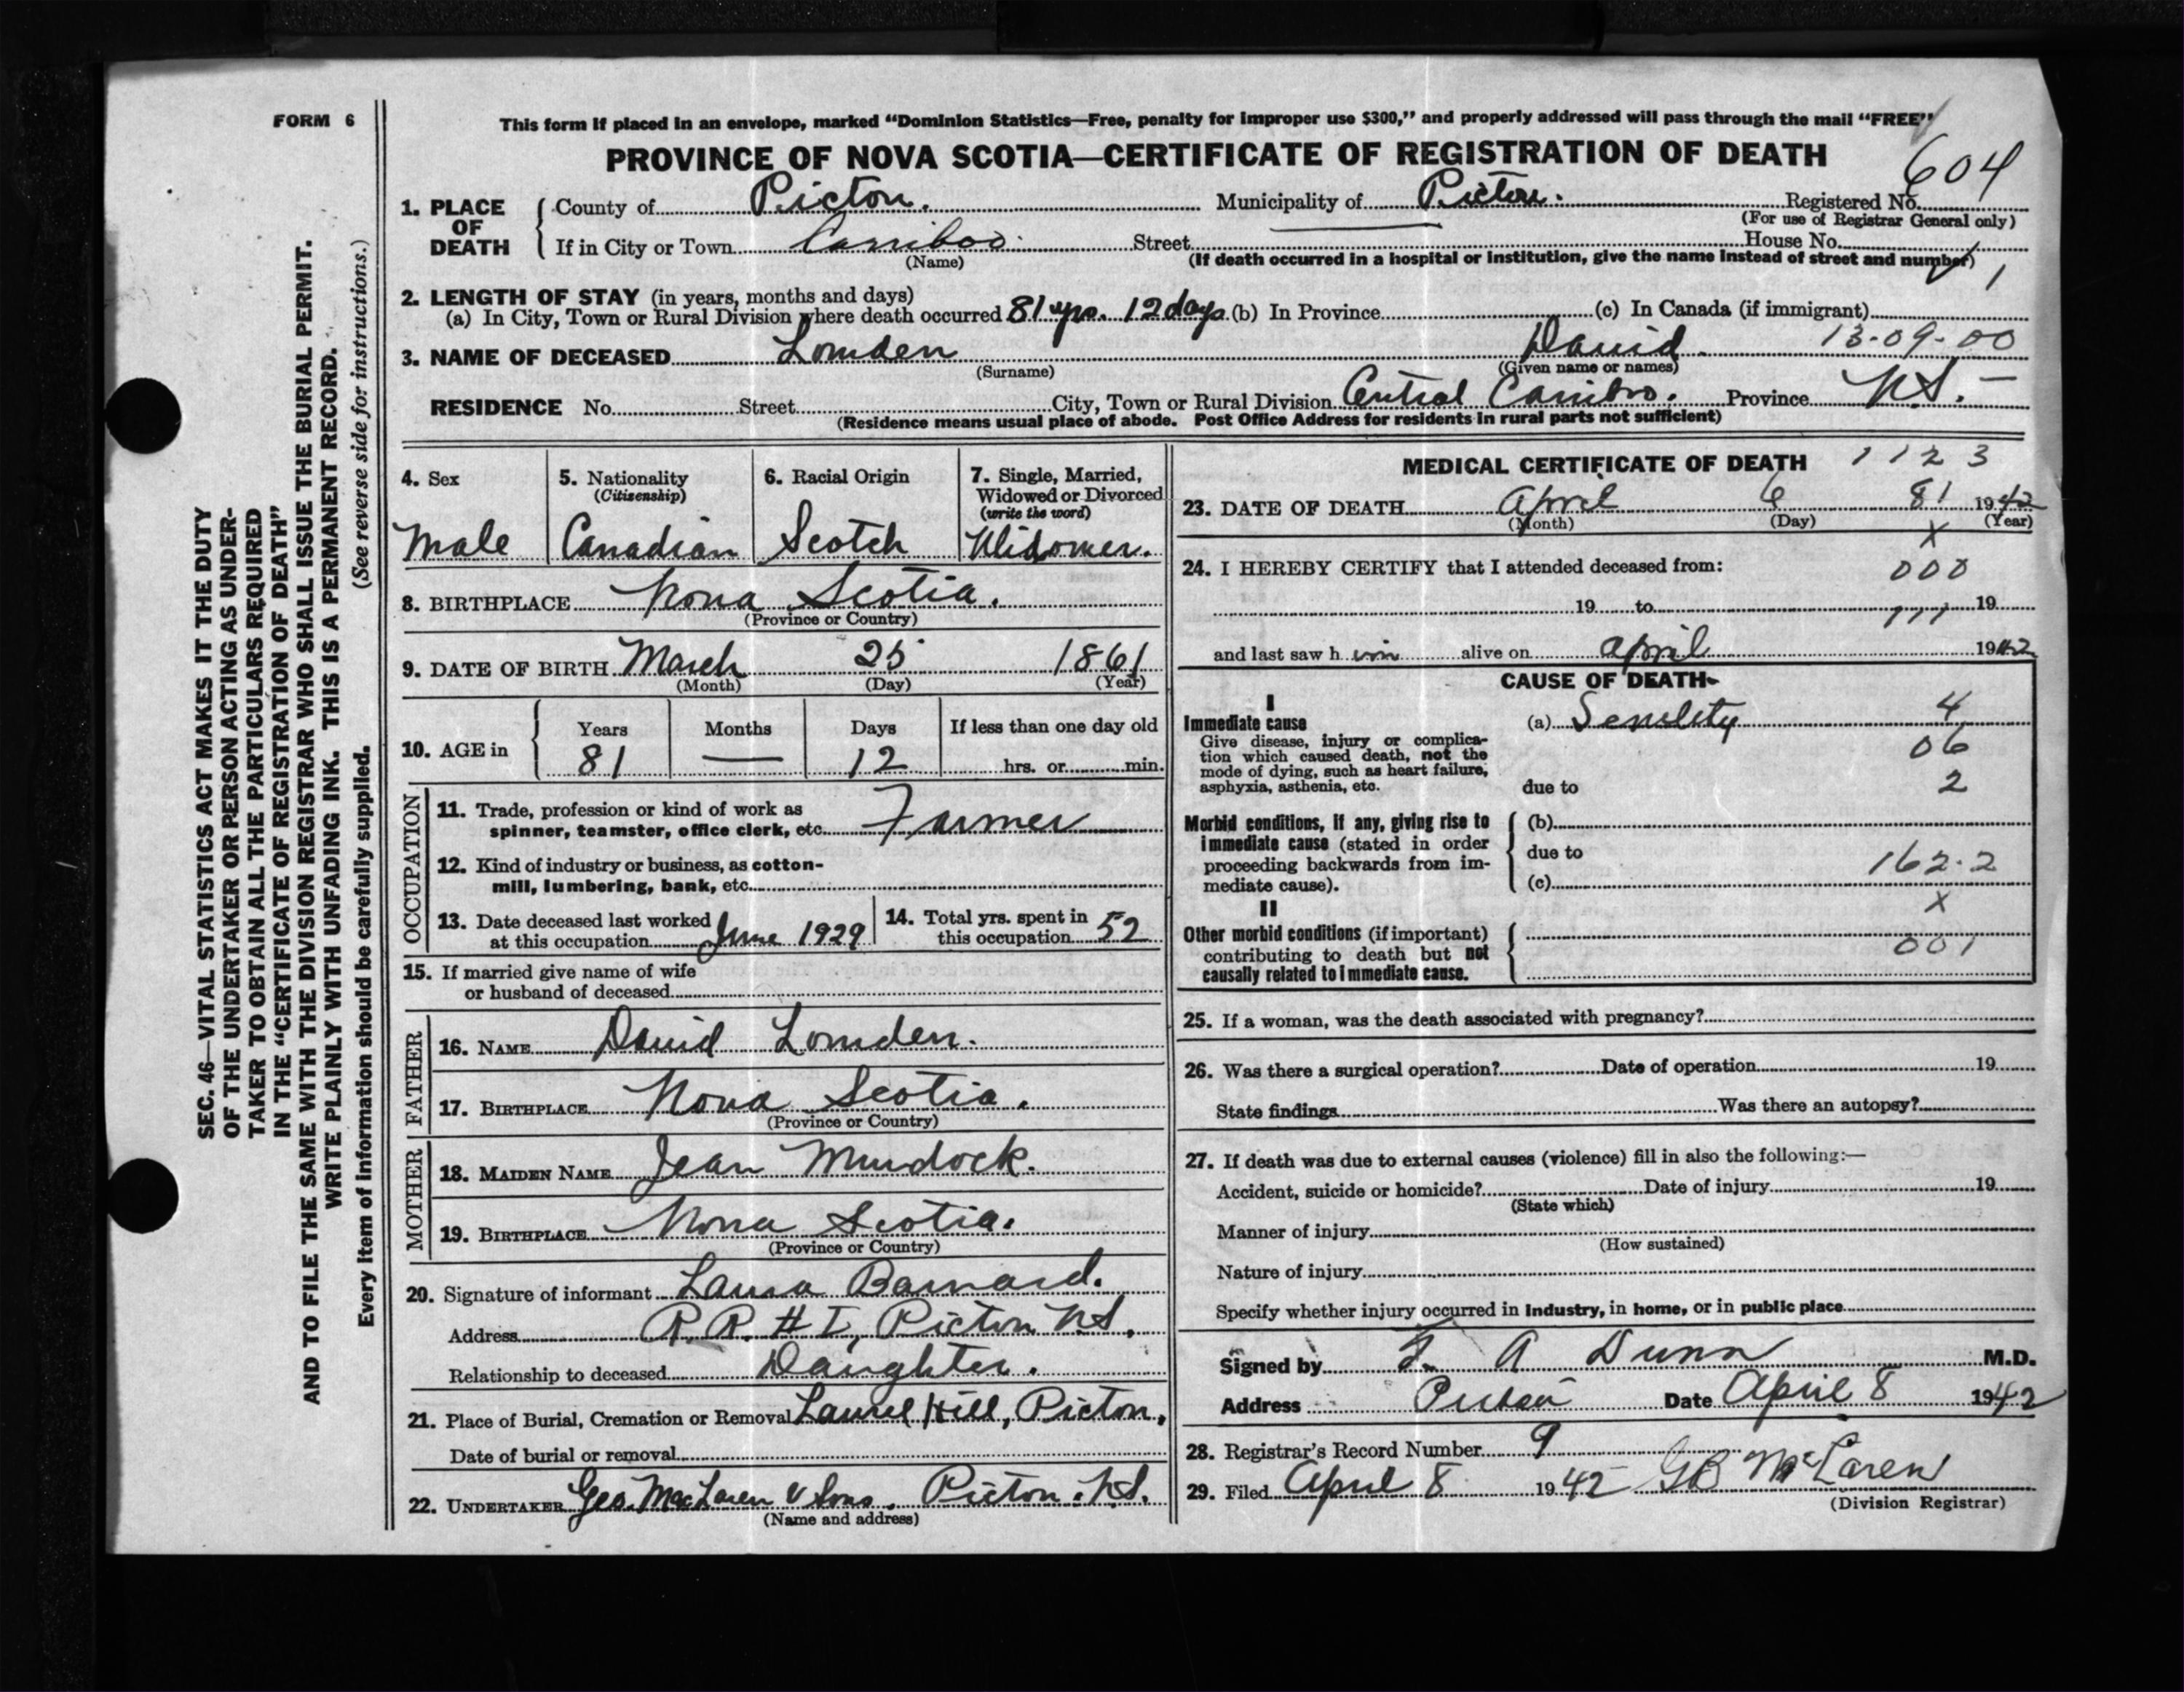 FORM 6
This form if placed in an envelope, marked “Dominion Statistics—Free, penalty for improper use $300,” and properly addressed will pass through the mail “FREE”
PROVINCE OF NOVA SCOTIA—CERTIFICATE OF REGISTRATION OF DEATH
604
1. PLACE OF DEATH { County of Pictou. Municipality of Pictou. Registered No.
(For use of Registrar General only)
If in City or Town Carriboo. Street House No.
(Name) (If death occurred in a hospital or institution, give the name instead of street and number)
1
2. LENGTH OF STAY (in years, months and days)
(a) In City, Town or Rural Division where death occurred 81 yrs. 12 days (b) In Province (c) In Canada (if immigrant)
3. NAME OF DECEASED Lowden David. 13-09-00
(Surname) (Given name or names)
RESIDENCE No. Street City, Town or Rural Division Central Cariboo. Province N.S. —
(Residence means usual place of abode. Post Office Address for residents in rural parts not sufficient)
4. Sex
Male
5. Nationality
(Citizenship)
Canadian
6. Racial Origin
Scotch
7. Single, Married, Widowed or Divorced
(write the word)
Widower.
8. BIRTHPLACE Nova Scotia.
(Province or Country)
9. DATE OF BIRTH March 25 1861
(Month) (Day) (Year)
10. AGE in { Years Months Days If less than one day old
81 — 12 hrs. or min.
OCCUPATION
11. Trade, profession or kind of work as
spinner, teamster, office clerk, etc. Farmer
12. Kind of industry or business, as cotton-
mill, lumbering, bank, etc.
13. Date deceased last worked
at this occupation June 1929
14. Total yrs. spent in
this occupation 52
15. If married give name of wife
or husband of deceased
FATHER
16. NAME David Lowden.
17. BIRTHPLACE Nova Scotia.
(Province or Country)
MOTHER
18. MAIDEN NAME Jean Murdock.
19. BIRTHPLACE Nova Scotia.
(Province or Country)
20. Signature of informant Laura Barnard.
Address R.R. # 1, Pictou N.S.
Relationship to deceased Daughter.
21. Place of Burial, Cremation or Removal Laurel Hill, Pictou,
Date of burial or removal
22. UNDERTAKER Geo. MacLaren & Sons. Pictou. N.S.
(Name and address)
MEDICAL CERTIFICATE OF DEATH 1123
23. DATE OF DEATH April 6 81 1942
(Month) (Day) (Year)
X
24. I HEREBY CERTIFY that I attended deceased from: 000
19 to 19
111
and last saw h im alive on April 1942
CAUSE OF DEATH
I
Immediate cause (a) Senility 4
Give disease, injury or complica-
tion which caused death, not the
mode of dying, such as heart failure,
asphyxia, asthenia, etc.
06
due to 2
Morbid conditions, if any, giving rise to
immediate cause (stated in order
proceeding backwards from im-
mediate cause).
(b)
due to
162.2
(c)
X
II
Other morbid conditions (if important)
contributing to death but not
causally related to immediate cause.
001
25. If a woman, was the death associated with pregnancy?
26. Was there a surgical operation? Date of operation 19
State findings Was there an autopsy?
27. If death was due to external causes (violence) fill in also the following:—
Accident, suicide or homicide? Date of injury 19
(State which)
Manner of injury
(How sustained)
Nature of injury
Specify whether injury occurred in industry, in home, or in public place
Signed by A Dunn M.D.
Address Pictou Date April 8 1942
28. Registrar's Record Number 9
29. Filed April 8 1942 GB McLaren
(Division Registrar)
SEC. 46—VITAL STATISTICS ACT MAKES IT THE DUTY
OF THE UNDERTAKER OR PERSON ACTING AS UNDER-
TAKER TO OBTAIN ALL THE PARTICULARS REQUIRED
IN THE “CERTIFICATE OF REGISTRATION OF DEATH”
AND TO FILE THE SAME WITH THE DIVISION REGISTRAR WHO SHALL ISSUE THE BURIAL PERMIT.
WRITE PLAINLY WITH UNFADING INK. THIS IS A PERMANENT RECORD.
Every item of information should be carefully supplied. (See reverse side for instructions.)